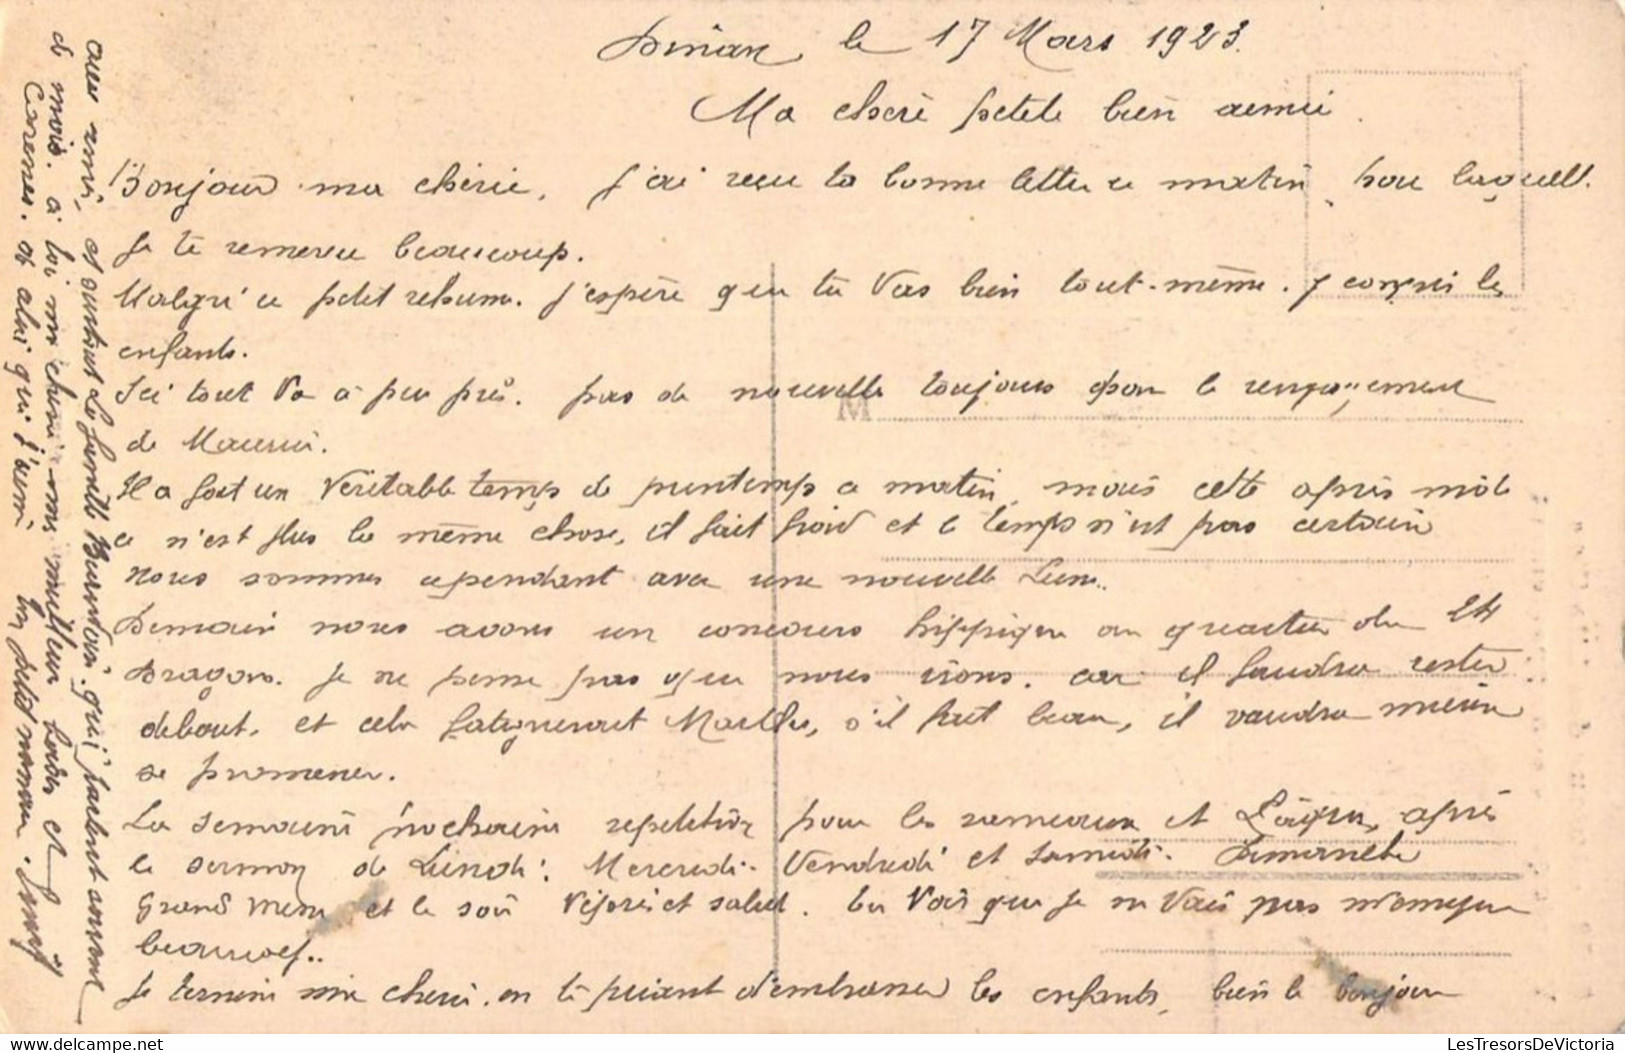 Dinan le 17 Mars 1923.
Ma chère petite bien aimée
Bonjour ma chérie, J'ai reçu ta bonne lettre ce matin, pour laquelle
je te remercie beaucoup.
Malgré ce petit rhume. j'espère que tu vas bien tout-même. y compris les
enfants.
Ici tout va à peu près. pas de nouvelle toujours pour le rengagement
de Maurice.
Il a fait un véritable temps de printemps ce matin, mais cette après midi
ce n'est plus la même chose, il fait froid et le temps n'est pas certain
Nous sommes cependant avec une nouvelle Lune..
Demain nous avons un concours hippique au quartier du 24
Dragons. Je ne pense pas que nous irions. car il faudra rester
debout, et cela fatiguerait, s'il fait beau, il vaudra mieux
se promener.
La semaine prochaine répétition pour les rameaux et Pâques, après
le sermon de Lundi. Mercredi. Vendredi et Samedi. Dimanche
Grand Messe et le soir Vêpres et salut. Tu vois que je ne vais pas m'
Je termine ma chérie. en te priant d'embrasser les enfants, bien le bonjour
aux amis, et surtout la famille qui
de moi. à toi ma chérie mes meilleurs baisers et
Caresses. de celui qui t'aime Ton petit
LesTresorsDeVictoria
fr.delcampe.net